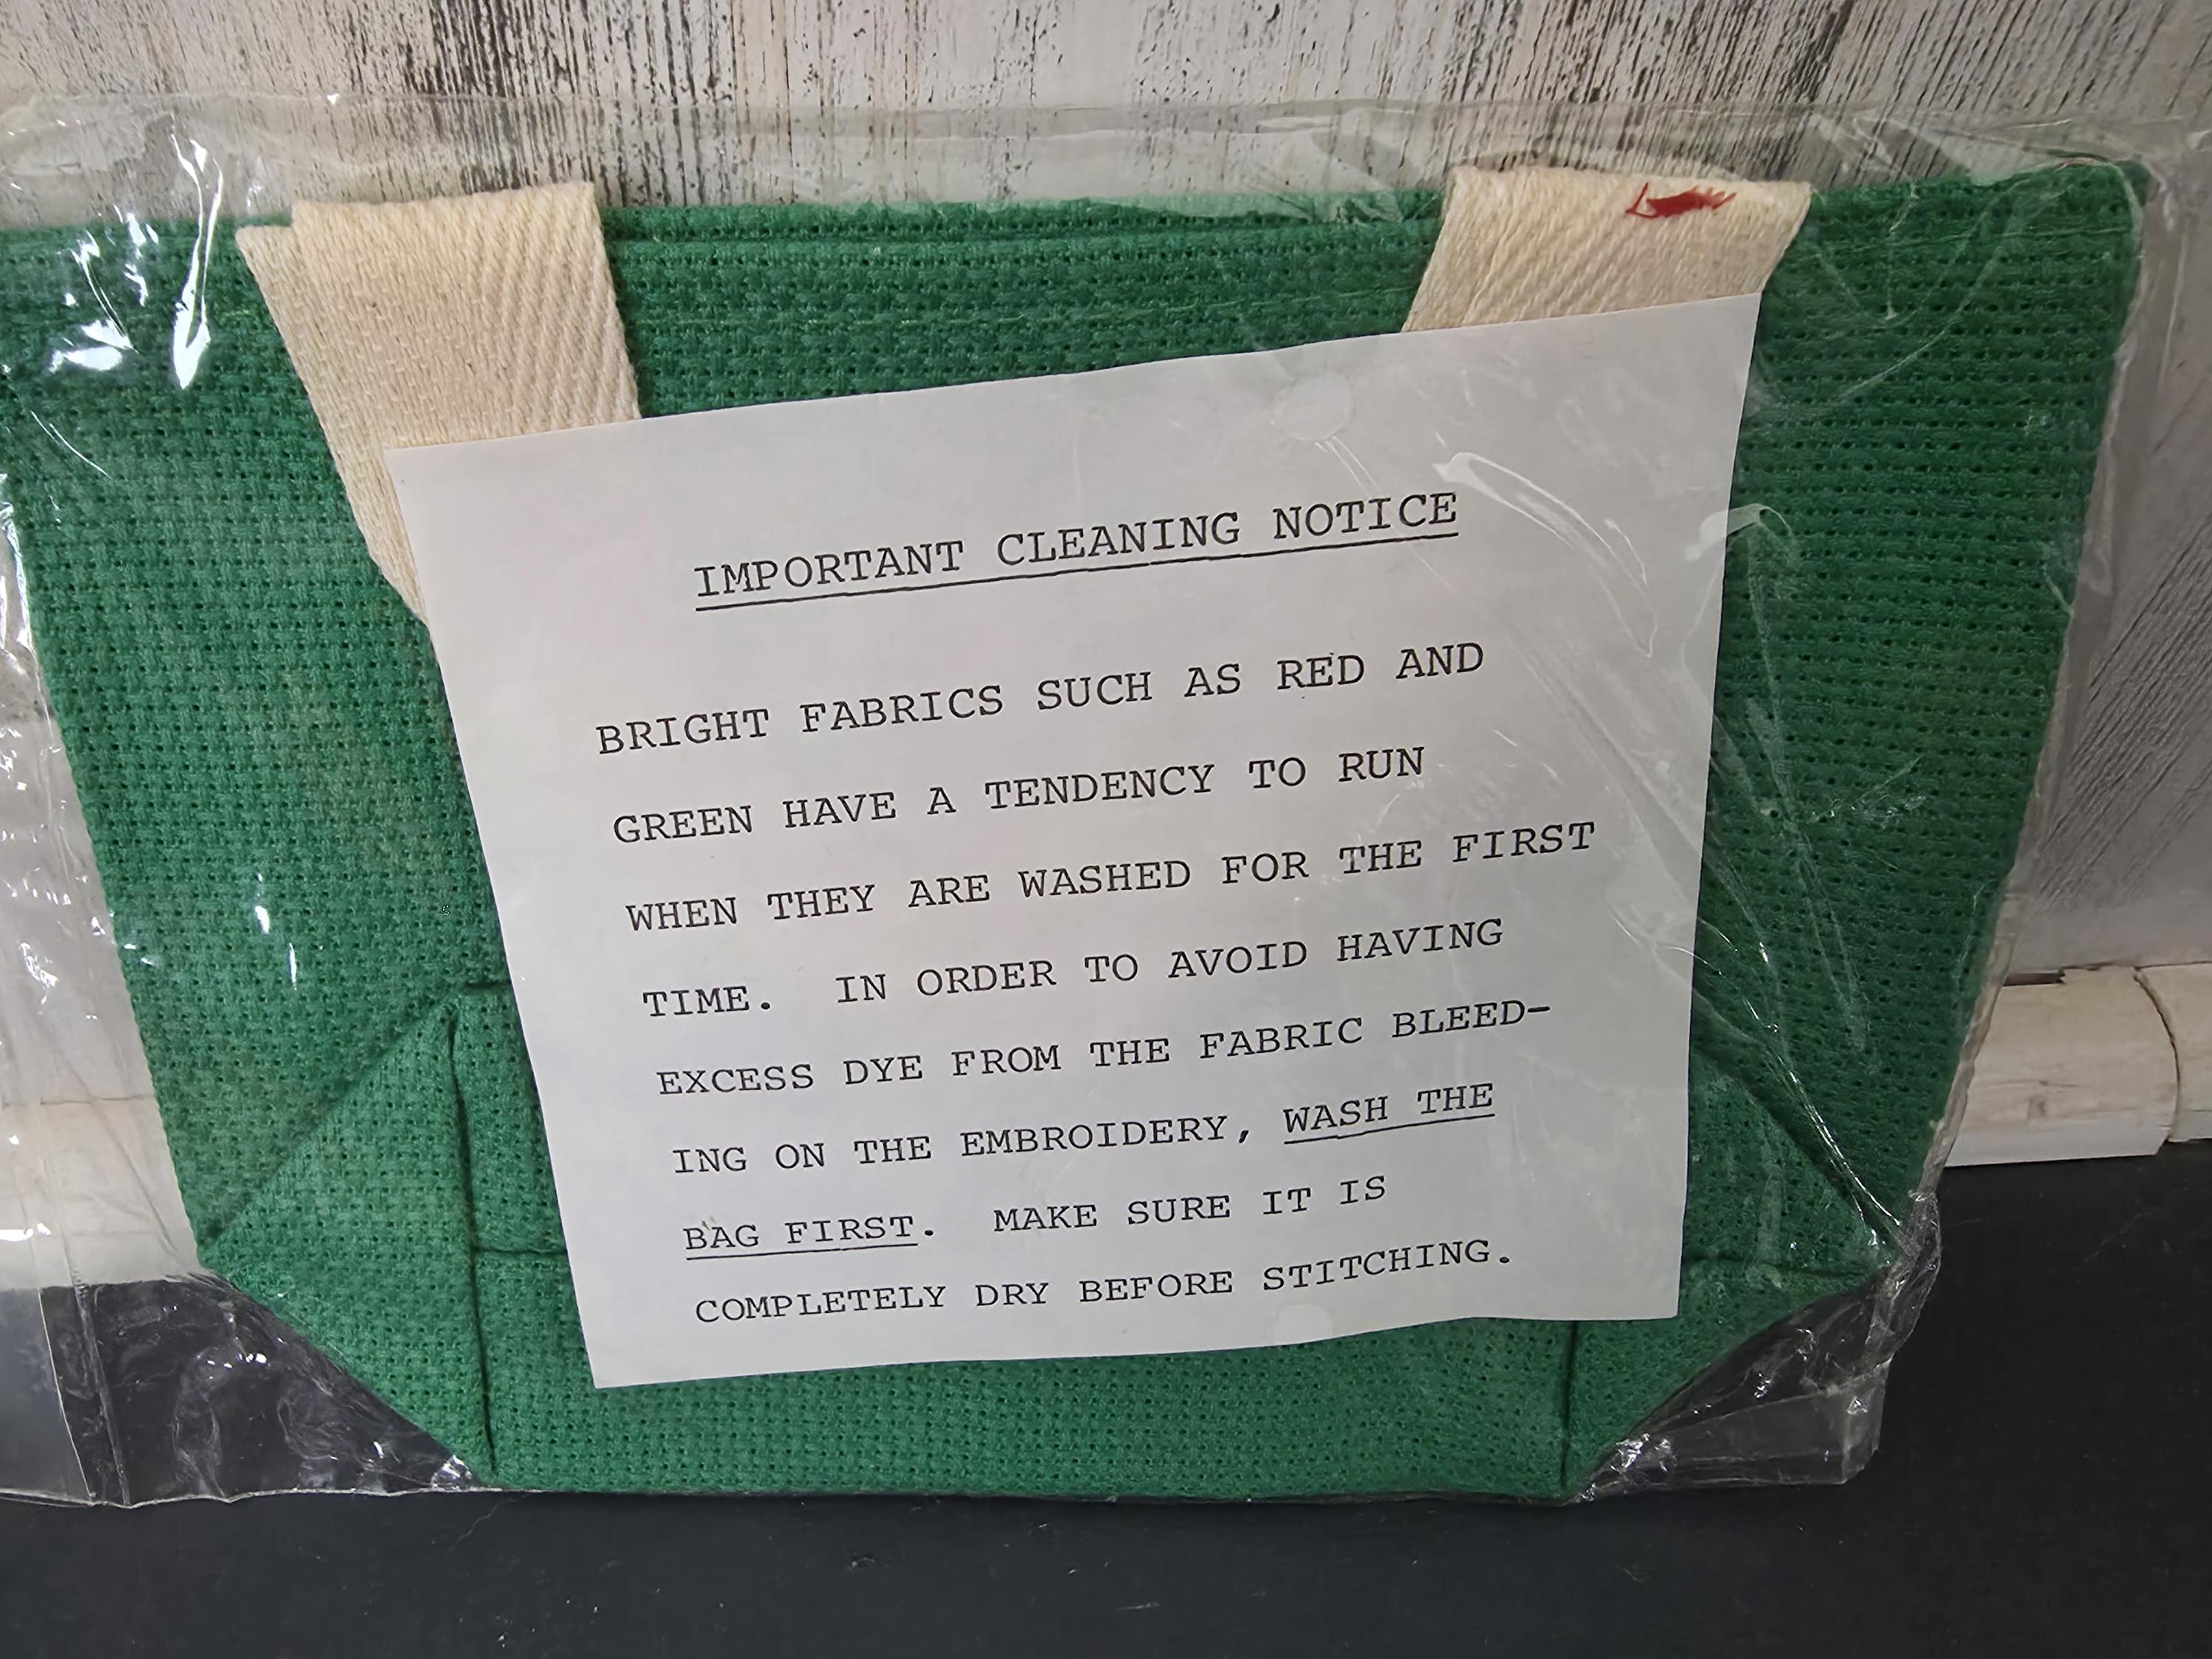 IMPORTANT CLEANING NOTICE
BRIGHT FABRICS SUCH AS RED AND
GREEN HAVE A TENDENCY TO RUN
WHEN THEY ARE WASHED FOR THE FIRST
TIME.  IN ORDER TO AVOID HAVING
EXCESS DYE FROM THE FABRIC BLEED-
ING ON THE EMBROIDERY, WASH THE
BAG FIRST.  MAKE SURE IT IS
COMPLETELY DRY BEFORE STITCHING.